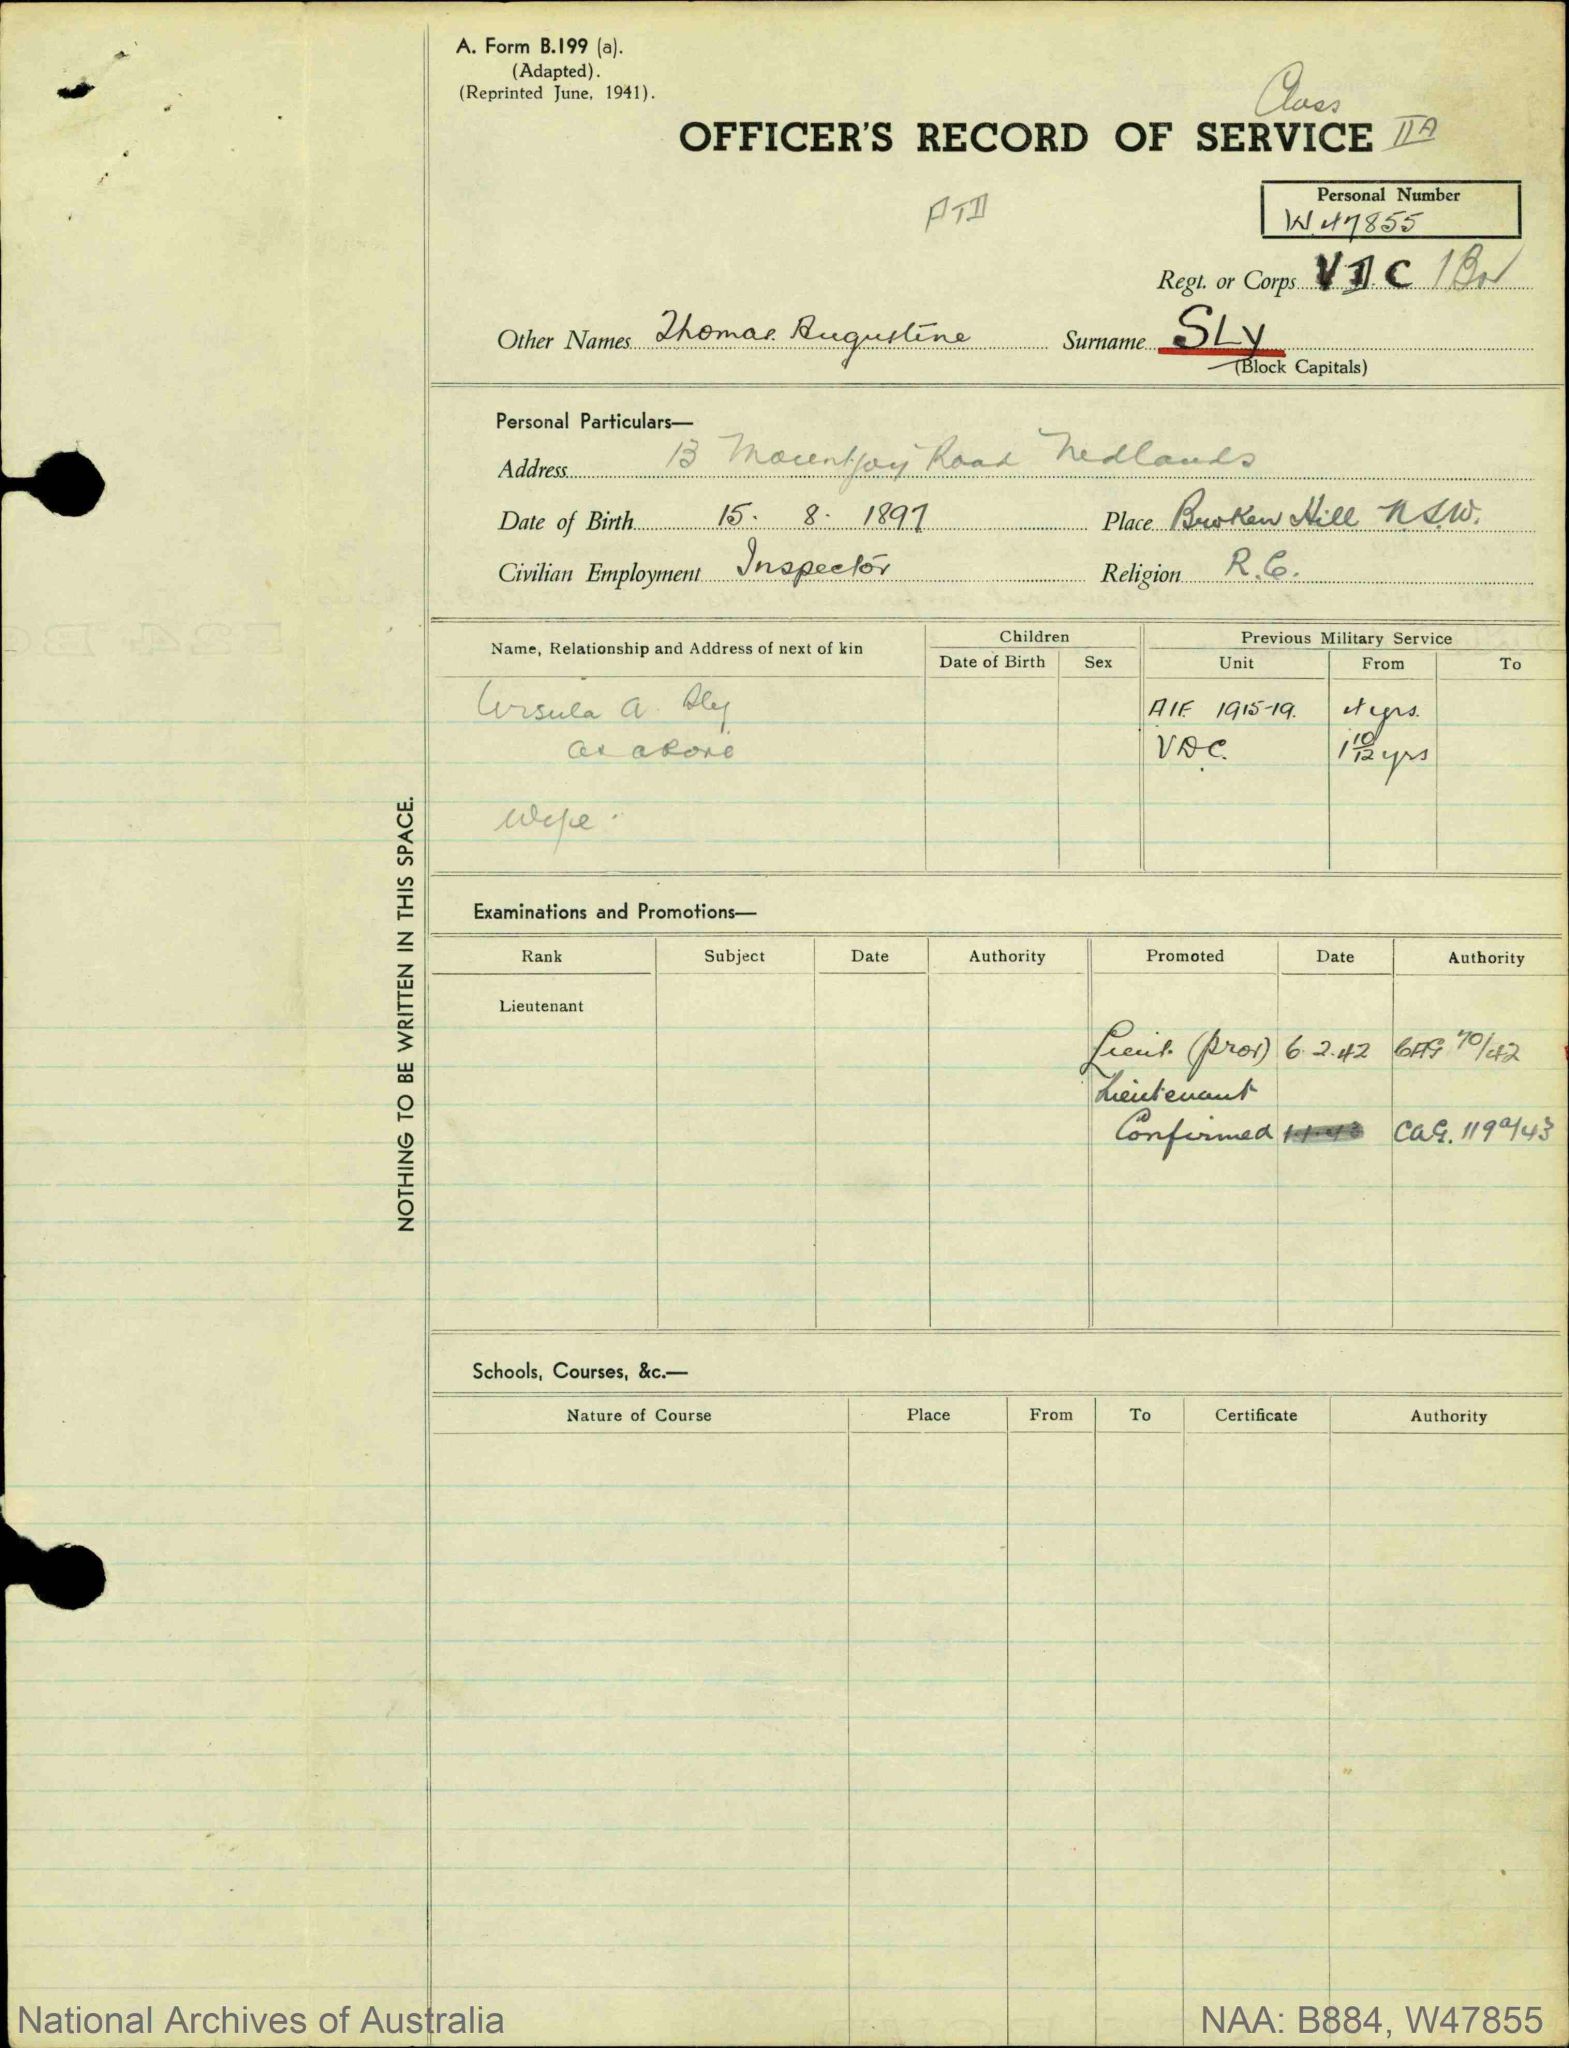 A. Form B.199 (a).
(Adapted).
(Reprinted June, 1941).
Class
OFFICER'S RECORD OF SERVICE IIA
Personal Number
W.47855
Regt. or Corps VDC 1 Bn
Other Names Thomas Augustine Surname SLY
(Block Capitals)
Personal Particulars—
Address 13 Mountjoy Road Nedlands
Date of Birth 15. 8. 1897 Place Broken Hill N.S.W.
Civilian Employment Inspector Religion R.C.
Name, Relationship and Address of next of kin Children Previous Military Service
Date of Birth Sex Unit From To
Ursula A. Sly AIF 1915-19. 4 yrs.
as above VDC. 1 10/12 yrs
Wife.
NOTHING TO BE WRITTEN IN THIS SPACE.
Examinations and Promotions—
Rank Subject Date Authority Promoted Date Authority
Lieutenant
Lieut. (prov) 6.2.42 CAG 70/42
Lieutenant
Confirmed CAG. 119a/43
Schools, Courses, &c.—
Nature of Course Place From To Certificate Authority
National Archives of Australia NAA: B884, W47855